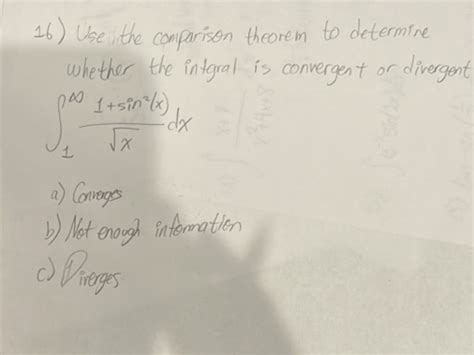 16) Use the comparison theorem to determine
whether the intgral is convergent or divergent
∫₁^∞ (1+sin²(x))/√x dx
a) Converges
b) Not enough information
c) Diverges